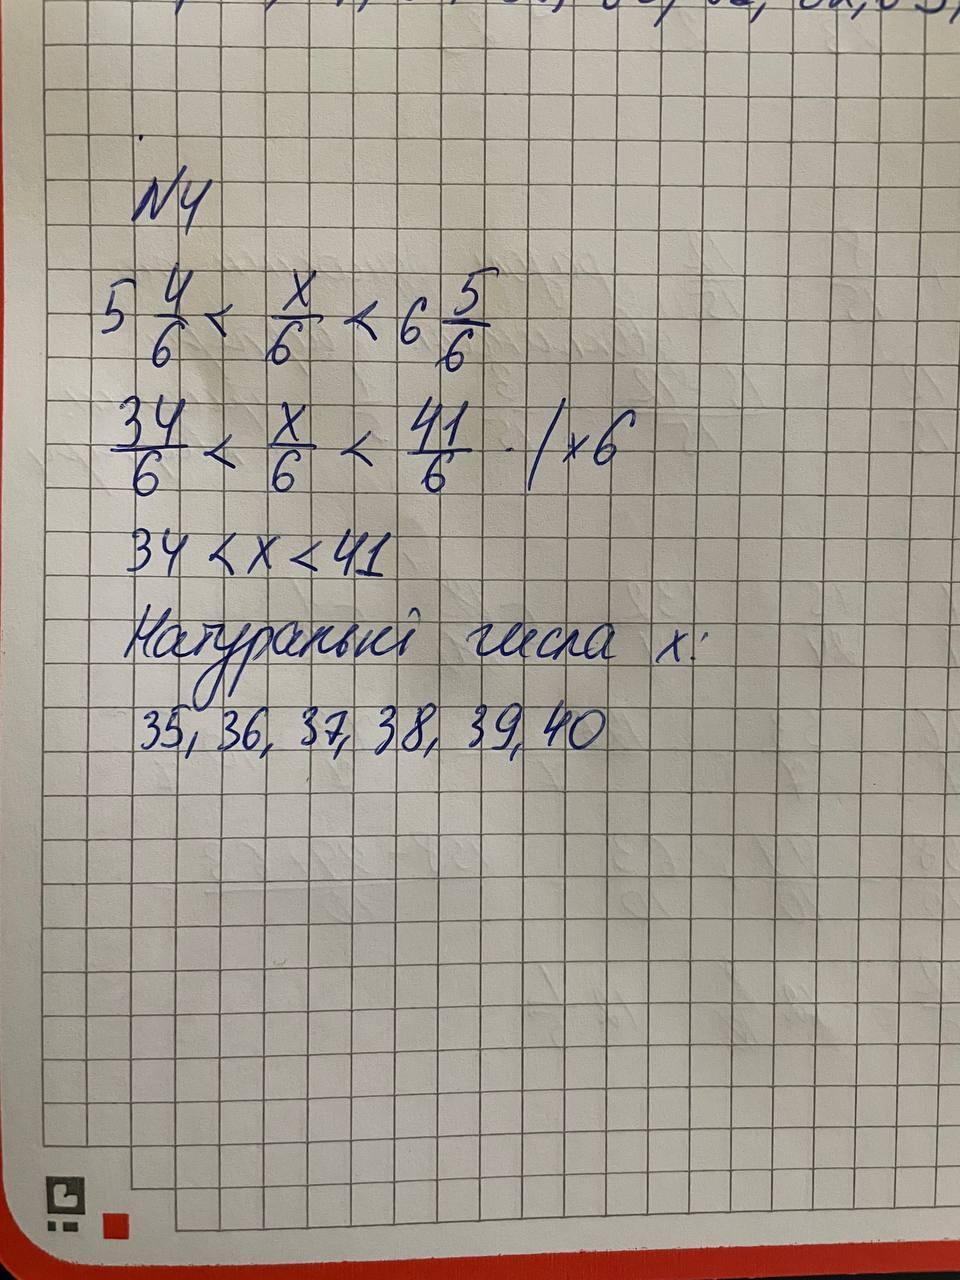 N4
5 4/6 < x/6 < 6 5/6
34/6 < x/6 < 41/6 · | ×6
34 < x < 41
Натуральні числа x:
35, 36, 37, 38, 39, 40